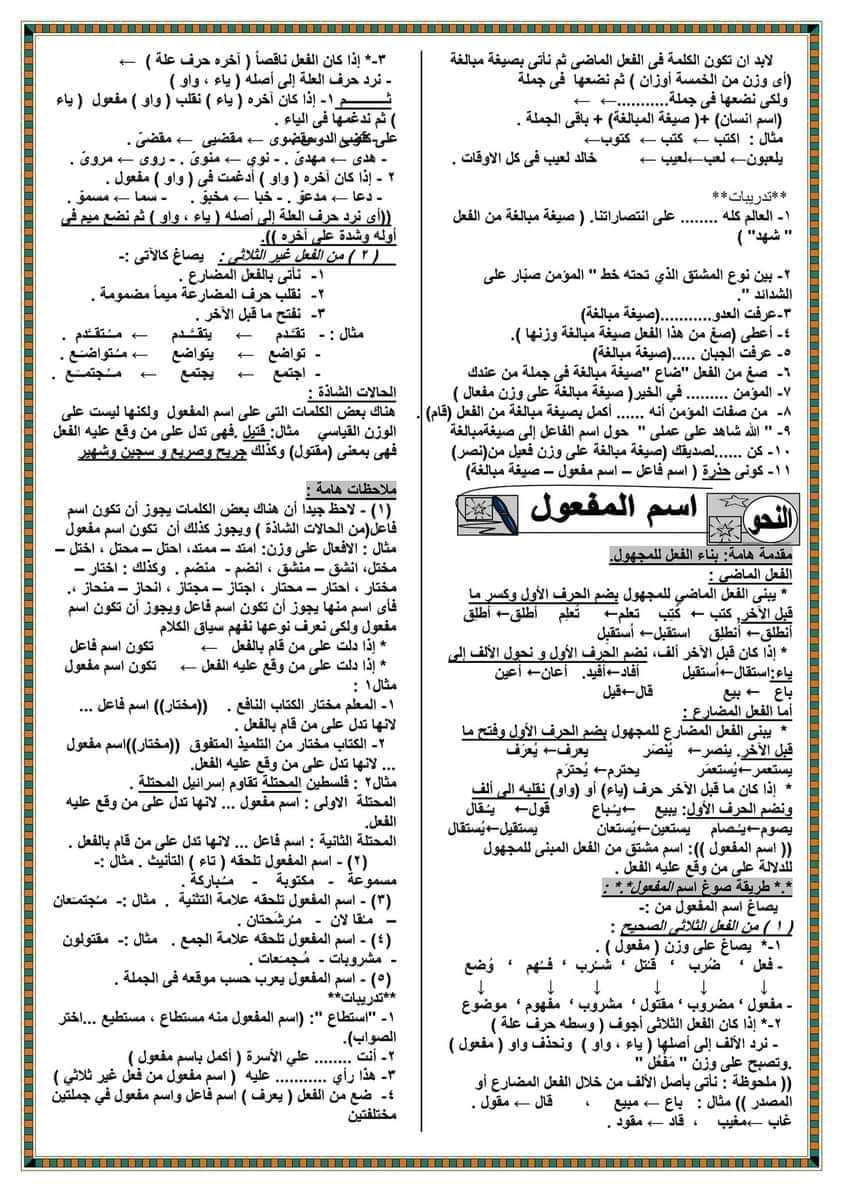 لابد ان تكون الكلمة فى الفعل الماضى ثم نأتى بصيغة مبالغة
(أى وزن من الخمسة أوزان ) ثم نضعها فى جملة
ولكى نضعها فى جملة...........← ←
(اسم انسان) +( صيغة المبالغة) + باقى الجملة .
مثال : اكتب ← كتب ← كتوب←
يلعبون← لعب←لعيب ← خالد لعيب فى كل الاوقات .
**تدريبات**
١- العالم كله ........ على انتصاراتنا. ( صيغة مبالغة من الفعل
" شهد" )
٢- بين نوع المشتق الذي تحته خط " المؤمن صبّار على
الشدائد ".
٣-عرفت العدو...........(صيغة مبالغة)
٤- أعطى (صغ من هذا الفعل صيغة مبالغة وزنها ).
٥- عرفت الجبان .....(صيغة مبالغة)
٦- صغ من الفعل "ضاع "صيغة مبالغة فى جملة من عندك
٧- المؤمن ......... في الخير( صيغة مبالغة على وزن مفعال )
٨- من صفات المؤمن أنه ...... أكمل بصيغة مبالغة من الفعل (قام) .
٩- " الله شاهد على عملى " حول اسم الفاعل إلى صيغةمبالغة
١٠- كن ......لصديقك (صيغة مبالغة على وزن فعيل من(نصر)
١١- كونى حذرة ( اسم فاعل – اسم مفعول – صيغة مبالغة)
النحو اسم المفعول
مقدمة هامة: بناء الفعل للمجهول.
الفعل الماضي :
* يبنى الفعل الماضي للمجهول بضم الحرف الأول وكسر ما
قبل الآخر. كتب ← كُتِب تعلم← تُعلِم أطلق← أُطلِق
أنطلق← أنطلق استقبل← أستُقبِل
* إذا كان قبل الآخر ألف، نضم الحرف الأول و نحول الألف إلى
ياء:استقال←أستقيل أفاد←أفيد. أعان← أعين
باع ← بيع قال←قيل
أما الفعل المضارع :
* يبنى الفعل المضارع للمجهول بضم الحرف الأول وفتح ما
قبل الآخر. ينصر← يُنصَر يعرف← يُعرَف
يستعمر←يُستعمَر يحترم← يُحترَم
* إذا كان ما قبل الآخر حرف (ياء) أو (واو) نقلبه الى ألف
ونضم الحرف الأول: يبيع ←يُـباع قول← يُـقال
يصوم←يـُصام يستعين←يُستعان يستقيل←يُستقال
(( اسم المفعول )): اسم مشتق من الفعل المبنى للمجهول
للدلالة على من وقع عليه الفعل .
*.* طريقة صوغ اسم المفعول*.* :
يصاغ اسم المفعول من :-
( ١ ) من الفعل الثلاثى الصحيح :
١-* يصاغ على وزن ( مفعول ) .
- فعل ‘ ضُرب ‘ قـُتل ‘ شـُرب ‘ فـُهم ‘ وُضع
↓ ↓ ↓ ↓ ↓ ↓
- مفعول ‘ مضروب ‘ مقتول ‘ مشروب ‘ مفهوم ‘ موضوع
٢-* إذا كان الفعل الثلاثى أجوف ( وسطه حرف علة )
- نرد الألف إلى أصلها ( ياء ، واو ) ونحذف واو ( مفعول )
.وتصبح على وزن " مَفعُل "
(( ملحوظة : نأتى بأصل الألف من خلال الفعل المضارع أو
المصدر )) مثال : باع ← مبيع ، قال ← مقول .
غاب ←مغيب ، قاد ← مقود .
٣-* إذا كان الفعل ناقصاً ( آخره حرف علة ) ←
- نرد حرف العلة إلى أصله ( ياء ، واو )
ثــــــــم ١- إذا كان آخره ( ياء ) نقلب ( واو ) مفعول ( ياء
) ثم ندغمها فى الياء .
مقضوى ← مقضيى ← مقضىّ .
- هدى ← مهدىّ . - نوي ← منوىّ . - روى ← مروىّ .
٢ - إذا كان آخره ( واو ) أدغمت فى ( واو ) مفعول .
- دعا ← مدعوّ . - خبا ← مخبوّ . - سما ← مسموّ .
((أى نرد حرف العلة إلى أصله ( ياء ، واو ) ثم نضع ميم فى
أوله وشدة على آخره )).
( ٢ ) من الفعل غير الثلاثى : يصاغ كالآتى :-
١- نأتى بالفعل المضارع .
٢- نقلب حرف المضارعة ميماً مضمومة .
٣- نفتح ما قبل الآخر .
مثال : - تقـدّم ← يتقـدّم ← مـُتقـدّم .
- تواضع ← يتواضع ← مـُتواضـَع .
- اجتمع ← يجتمع ← مـُجتمـَع .
الحالات الشاذة :
هناك بعض الكلمات التى على اسم المفعول ولكنها ليست على
الوزن القياسي مثال: قتيل .فهى تدل على من وقع عليه الفعل
فهى بمعنى (مقتول) وكذلك جريح وصريع و سجين وشهير
ملاحظات هامة :
(١) - لاحظ جيدا أن هناك بعض الكلمات يجوز أن تكون اسم
فاعل(من الحالات الشاذة ) ويجوز كذلك أن تكون اسم مفعول
مثال : الافعال على وزن: امتد – ممتد، احتل – محتل ، اختل –
مختل، انشق – منشق ، انضم - منضم . وكذلك : اختار –
مختار ، احتار – محتار ، اجتاز – مجتاز ، انحاز – منحاز ،.
فأى اسم منها يجوز أن تكون اسم فاعل ويجوز أن تكون اسم
مفعول ولكى نعرف نوعها نفهم سياق الكلام
* إذا دلت على من قام بالفعل ← تكون اسم فاعل
* إذا دلت على من وقع عليه الفعل ← تكون اسم مفعول
مثال١ :
١- المعلم مختار الكتاب النافع . ((مختار)) اسم فاعل ...
لانها تدل على من قام بالفعل .
٢- الكتاب مختار من التلميذ المتفوق ((مختار))اسم مفعول
... لانها تدل على من وقع عليه الفعل.
مثال٢ : فلسطين المحتلة تقاوم إسرائيل المحتلة .
المحتلة الاولى : اسم مفعول ... لانها تدل على من وقع عليه
الفعل.
المحتلة الثانية : اسم فاعل ... لانها تدل على من قام بالفعل .
(٢) - اسم المفعول تلحقه ( تاء ) التأنيث . مثال :-
مسموعة - مكتوبة - مـُباركة .
(٣) - اسم المفعول تلحقه علامة التثنية . مثال :- مـُجتمـَعان
– مـُقا لان - مـُرشَحتان .
(٤) - اسم المفعول تلحقه علامة الجمع . مثال :- مقتولون
- مشروبات - مـُجمَعات .
(٥) - اسم المفعول يعرب حسب موقعه فى الجملة .
**تدريبات**
١- "استطاع ": (اسم المفعول منه مستطاع ، مستطيع ...اختر
الصواب).
٢- أنت ........ علي الأسرة ( أكمل باسم مفعول )
٣- هذا رأي .......... عليه ( اسم مفعول من فعل غير ثلاثي )
٤- ضع من الفعل ( يعرف ) اسم فاعل واسم مفعول في جملتين
مختلفتين